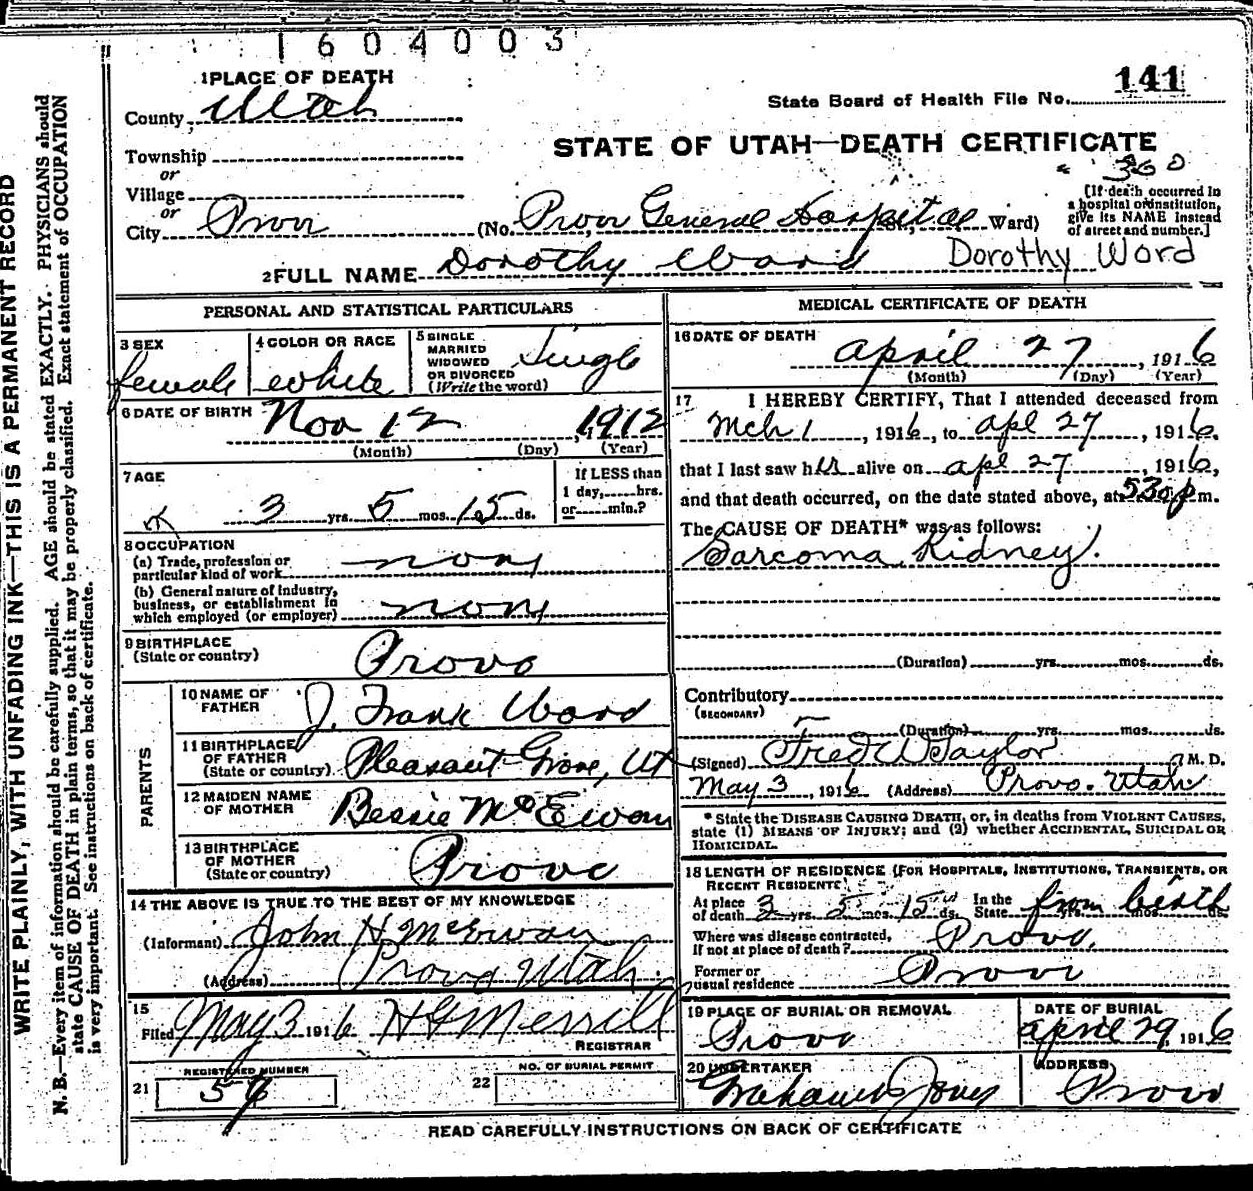 1604003
1 PLACE OF DEATH
141
County, Utah
State Board of Health File No.
Township
STATE OF UTAH—DEATH CERTIFICATE
or
360
Village
or
[If death occurred in
a hospital or institution,
give its NAME instead
of street and number.]
City Provo (No. Provo General Hospital St., Ward)
2 FULL NAME Dorothy Ward Dorothy Word
PERSONAL AND STATISTICAL PARTICULARS
3 SEX
female
4 COLOR OR RACE
white
5 SINGLE
MARRIED
WIDOWED
OR DIVORCED
(Write the word)
Single
6 DATE OF BIRTH Nov 12, 1912
(Month) (Day) (Year)
7 AGE
3 yrs. 5 mos. 15 ds.
If LESS than
1 day,......hrs.
or......min.?
8 OCCUPATION
(a) Trade, profession or
particular kind of work non
(b) General nature of Industry,
business, or establishment in
which employed (or employer) non
9 BIRTHPLACE
(State or country) Provo
PARENTS
10 NAME OF
FATHER J. Frank Ward
11 BIRTHPLACE
OF FATHER
(State or country) Pleasant Grove, Ut
12 MAIDEN NAME
OF MOTHER Bessie McEwan
13 BIRTHPLACE
OF MOTHER
(State or country) Provo
14 THE ABOVE IS TRUE TO THE BEST OF MY KNOWLEDGE
(Informant) John H McEwan
(Address) Provo Utah
15
Filed May 3 1916 H G Merrill
REGISTRAR
21 REGISTERED NUMBER
22 NO. OF BURIAL PERMIT
MEDICAL CERTIFICATE OF DEATH
16 DATE OF DEATH
April 27, 1916
(Month) (Day) (Year)
17 I HEREBY CERTIFY, That I attended deceased from
Mch 1, 1916, to Apl 27, 1916,
that I last saw her alive on Apl 27, 1916,
and that death occurred, on the date stated above, at 530 p m.
The CAUSE OF DEATH* was as follows:
Sarcoma Kidney.
(Duration) yrs. mos. ds.
Contributory
(SECONDARY)
(Duration) yrs. mos. ds.
(Signed) Fred W Taylor M. D.
May 3, 1916 (Address) Provo. Utah
* State the DISEASE CAUSING DEATH, or, in deaths from VIOLENT CAUSES,
state (1) MEANS OF INJURY; and (2) whether ACCIDENTAL, SUICIDAL OR
HOMICIDAL.
18 LENGTH OF RESIDENCE (FOR HOSPITALS, INSTITUTIONS, TRANSIENTS, OR
RECENT RESIDENTS)
At place
of death 3 yrs. 5 mos. 15 ds. In the
State from birth yrs. mos. ds.
Where was disease contracted,
If not at place of death? Provo,
Former or
usual residence Provo
19 PLACE OF BURIAL OR REMOVAL
Provo
DATE OF BURIAL
April 29, 1916
20 UNDERTAKER
ADDRESS
Provo
READ CAREFULLY INSTRUCTIONS ON BACK OF CERTIFICATE
WRITE PLAINLY, WITH UNFADING INK—THIS IS A PERMANENT RECORD
N. B.—Every item of information should be carefully supplied. AGE should be stated EXACTLY. PHYSICIANS should
state CAUSE OF DEATH in plain terms, so that it may be properly classified. Exact statement of OCCUPATION
is very important. See instructions on back of certificate.